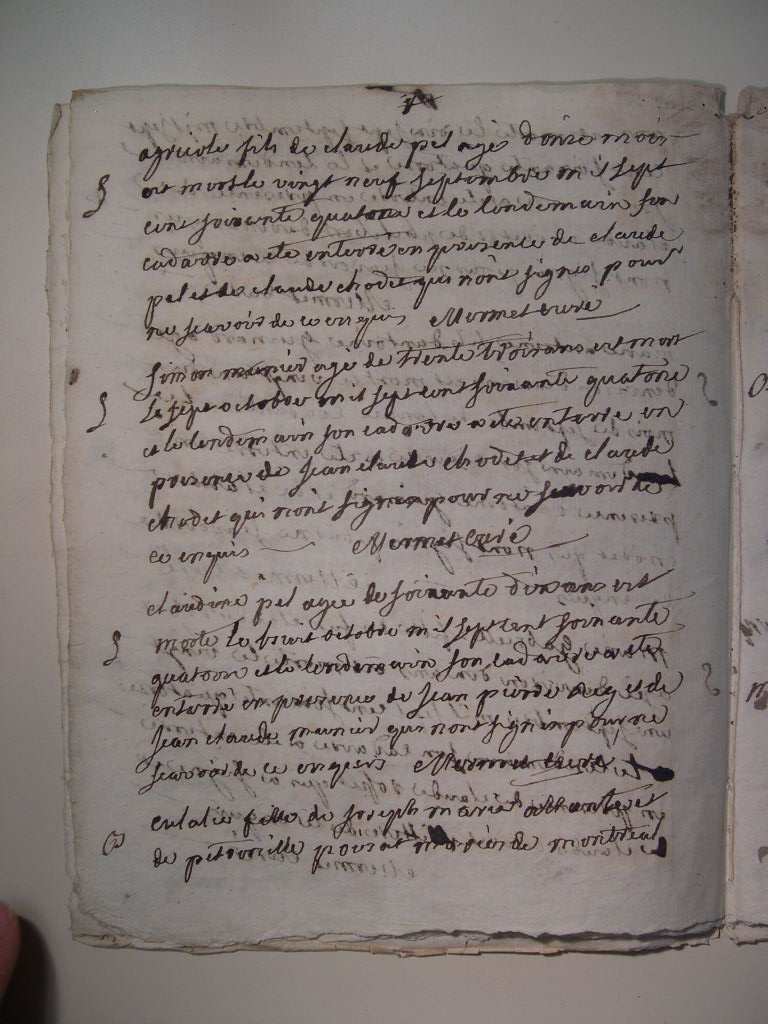 agricole fils de claude pel agé donse mois
est mort le vingt neuf septembre mil sept
cent soixante quatorze et le lendemain son
cadavre a ete enterré en presence de claude
pel et de claude chodet qui nont signes pour
ne scavoir de ce enquis Mermet curé
simon munier agé de trente trois ans est mort
le sept octobre mil sept cent soixante quatorze
et le lendemain son cadavre a ete enterre en
presence de jean claude chodet et de claude
chodet qui nont signe pour ne scavoir de
ce enquis Mermet curé
claudine pel agee de soixante dix ans est
morte le huit octobre mil sept cent soixante
quatorze et le lendemain son cadavre a ete
enterré en presence de jean pierre et de
jean claude munier qui nont signe pour ne
scavoir de ce enquis Mermet curé
eulalie fille de joseph marie et
de petronille mariés de montreal